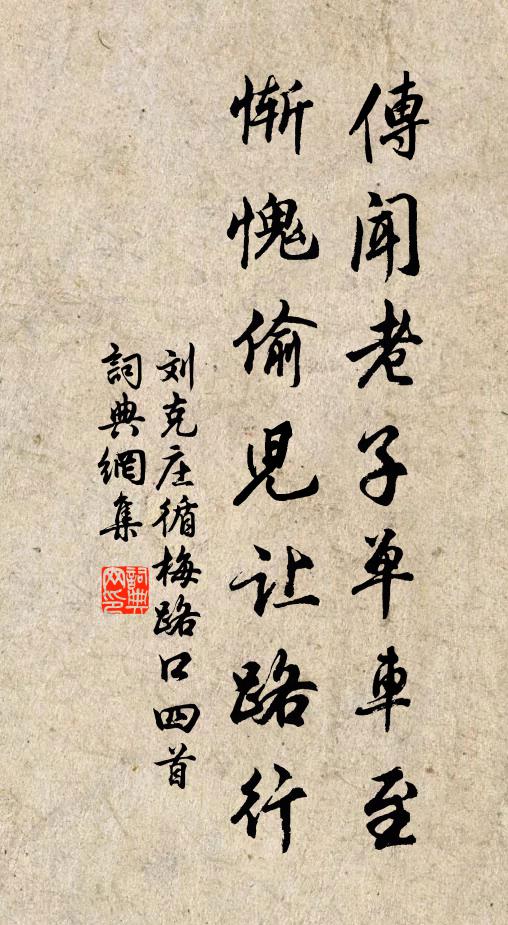 傳聞老子单車至
慚愧偷兒让路行
刘克庄循梅路口四首
詞典網集
詞典
网印